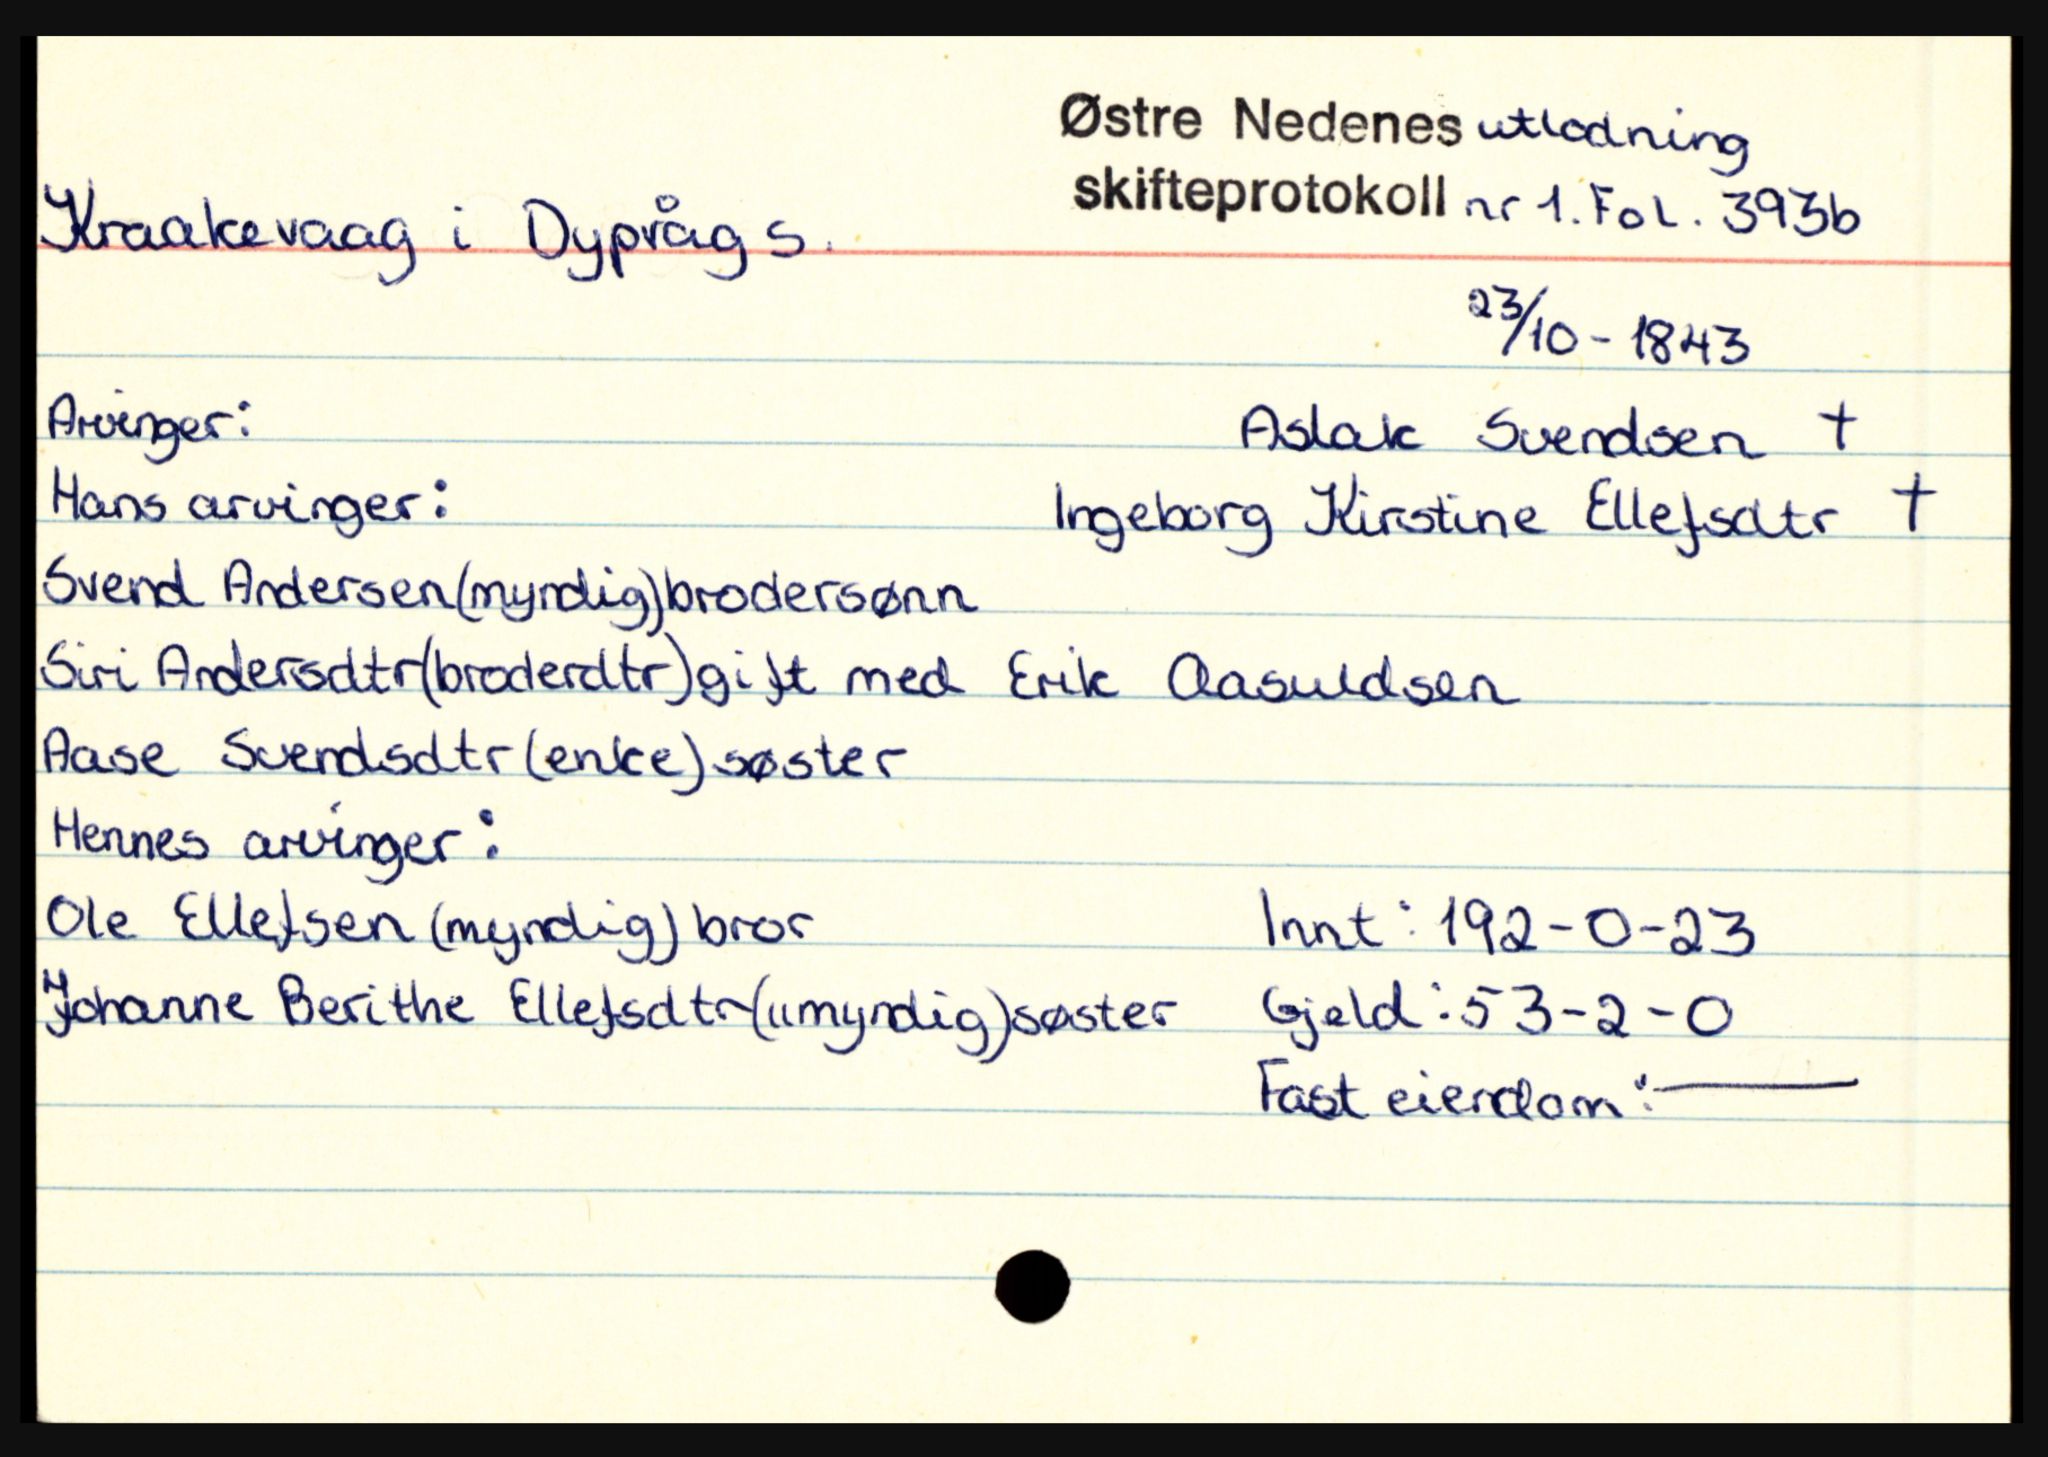 Østre Nedenes utlodning
skifteprotokoll nr 1. Fol. 393b
Kraakevaag i Dypvåg s.
23/10-1843
Arvinger:
Aslak Svendsen †
Hans arvinger:
Ingeborg Kirstine Ellefsdtr †
Svend Andersen (myndig) brodersønn
Siri Andersdtr (broderdtr) gift med Erik Aasuldsen
Aase Svendsdtr (enke) søster
Hennes arvinger:
Ole Ellefsen (myndig) bror
Innt: 192-0-23
Johanne Berithe Ellefsdtr (umyndig) søster
Gjeld: 53-2-0
Fast eiendom: —